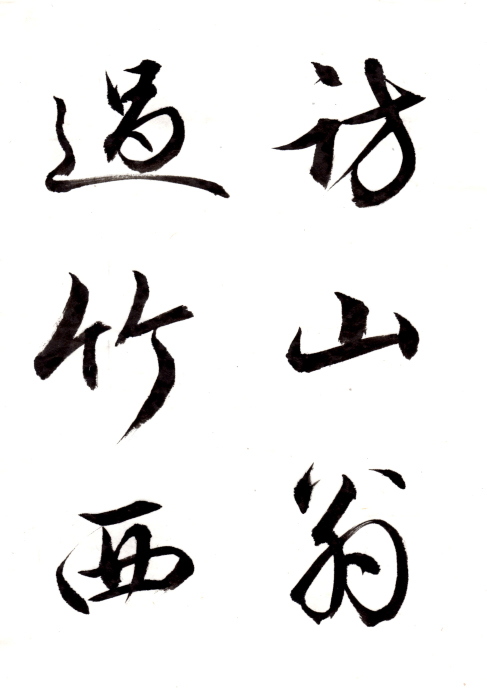 訪山翁
過竹西